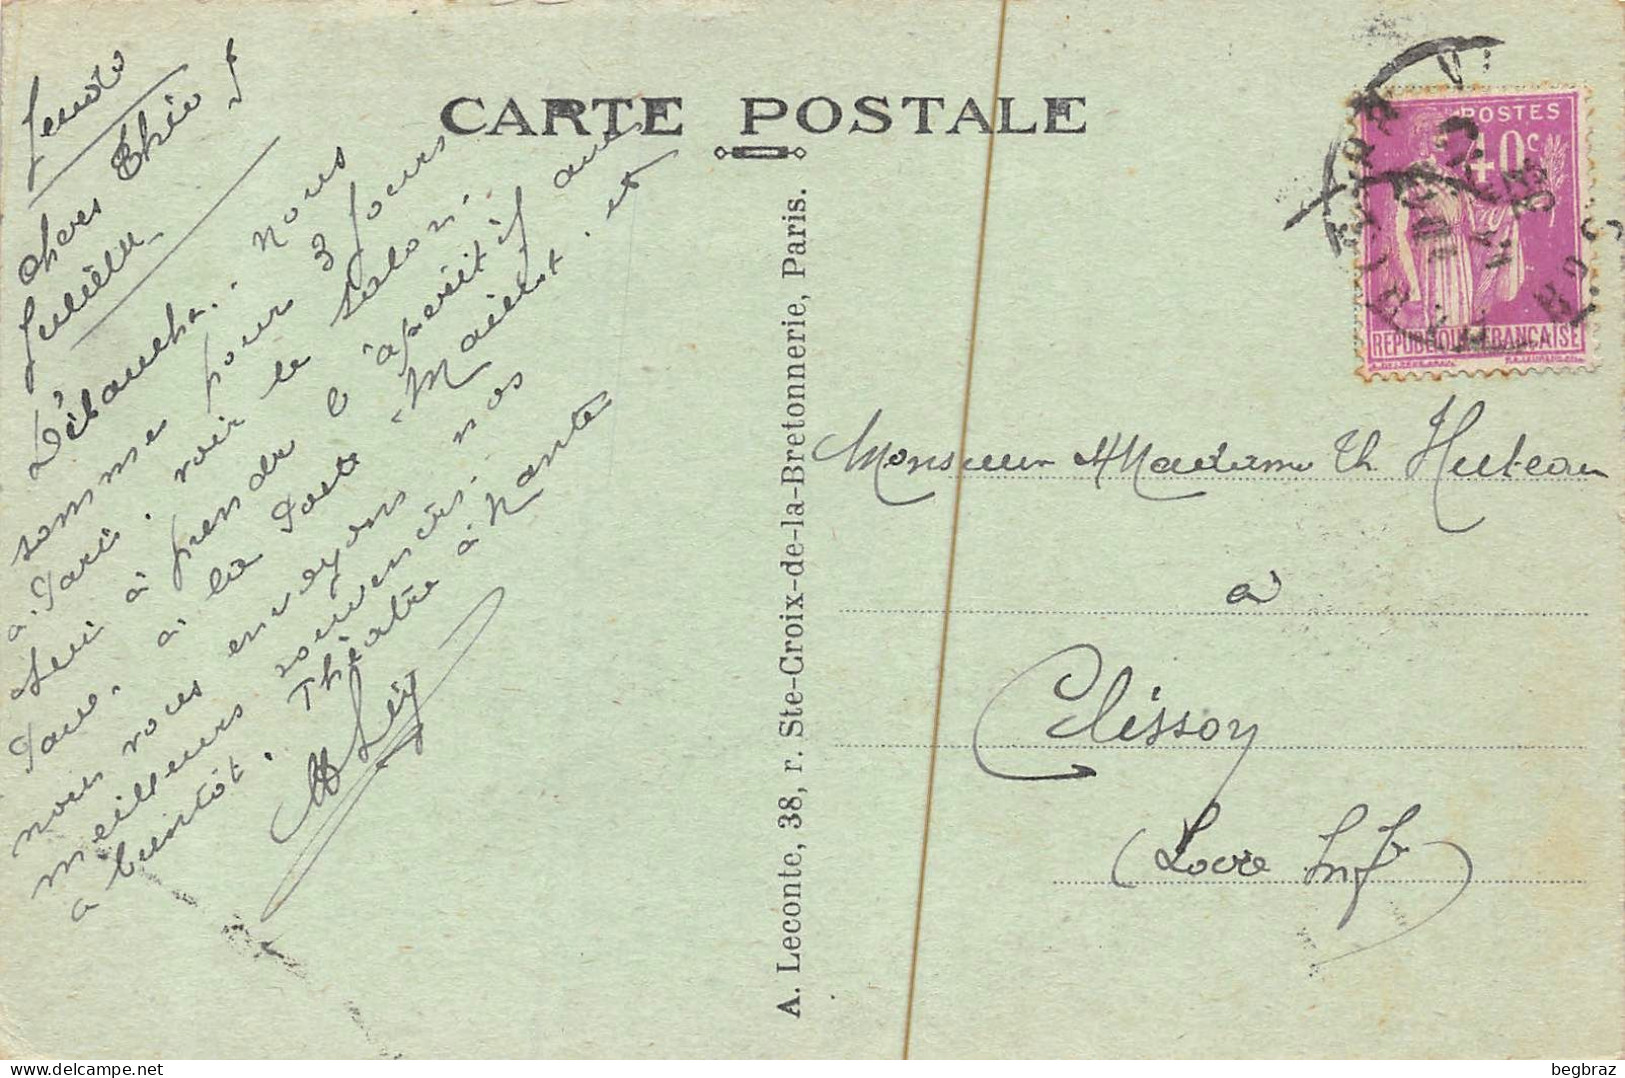 CARTE POSTALE
Jeudi
Chers Théo &
Juliette
Débauche.. Nous
sommes pour 3 jours
à Paris. voir le salon.
à prendre l'apéritif avec
à la Porte Maillot. et
nous vous envoyons nos
meilleurs souvenirs.
à bientôt. Théâtre à Nantes
A. Leconte, 38, r. Ste-Croix-de-la-Bretonnerie, Paris.
POSTES
40c
REPUBLIQUE FRANÇAISE
Monsieur & Madame Th. Huteau
à
Clisson
(Loire Infre)
begbraz